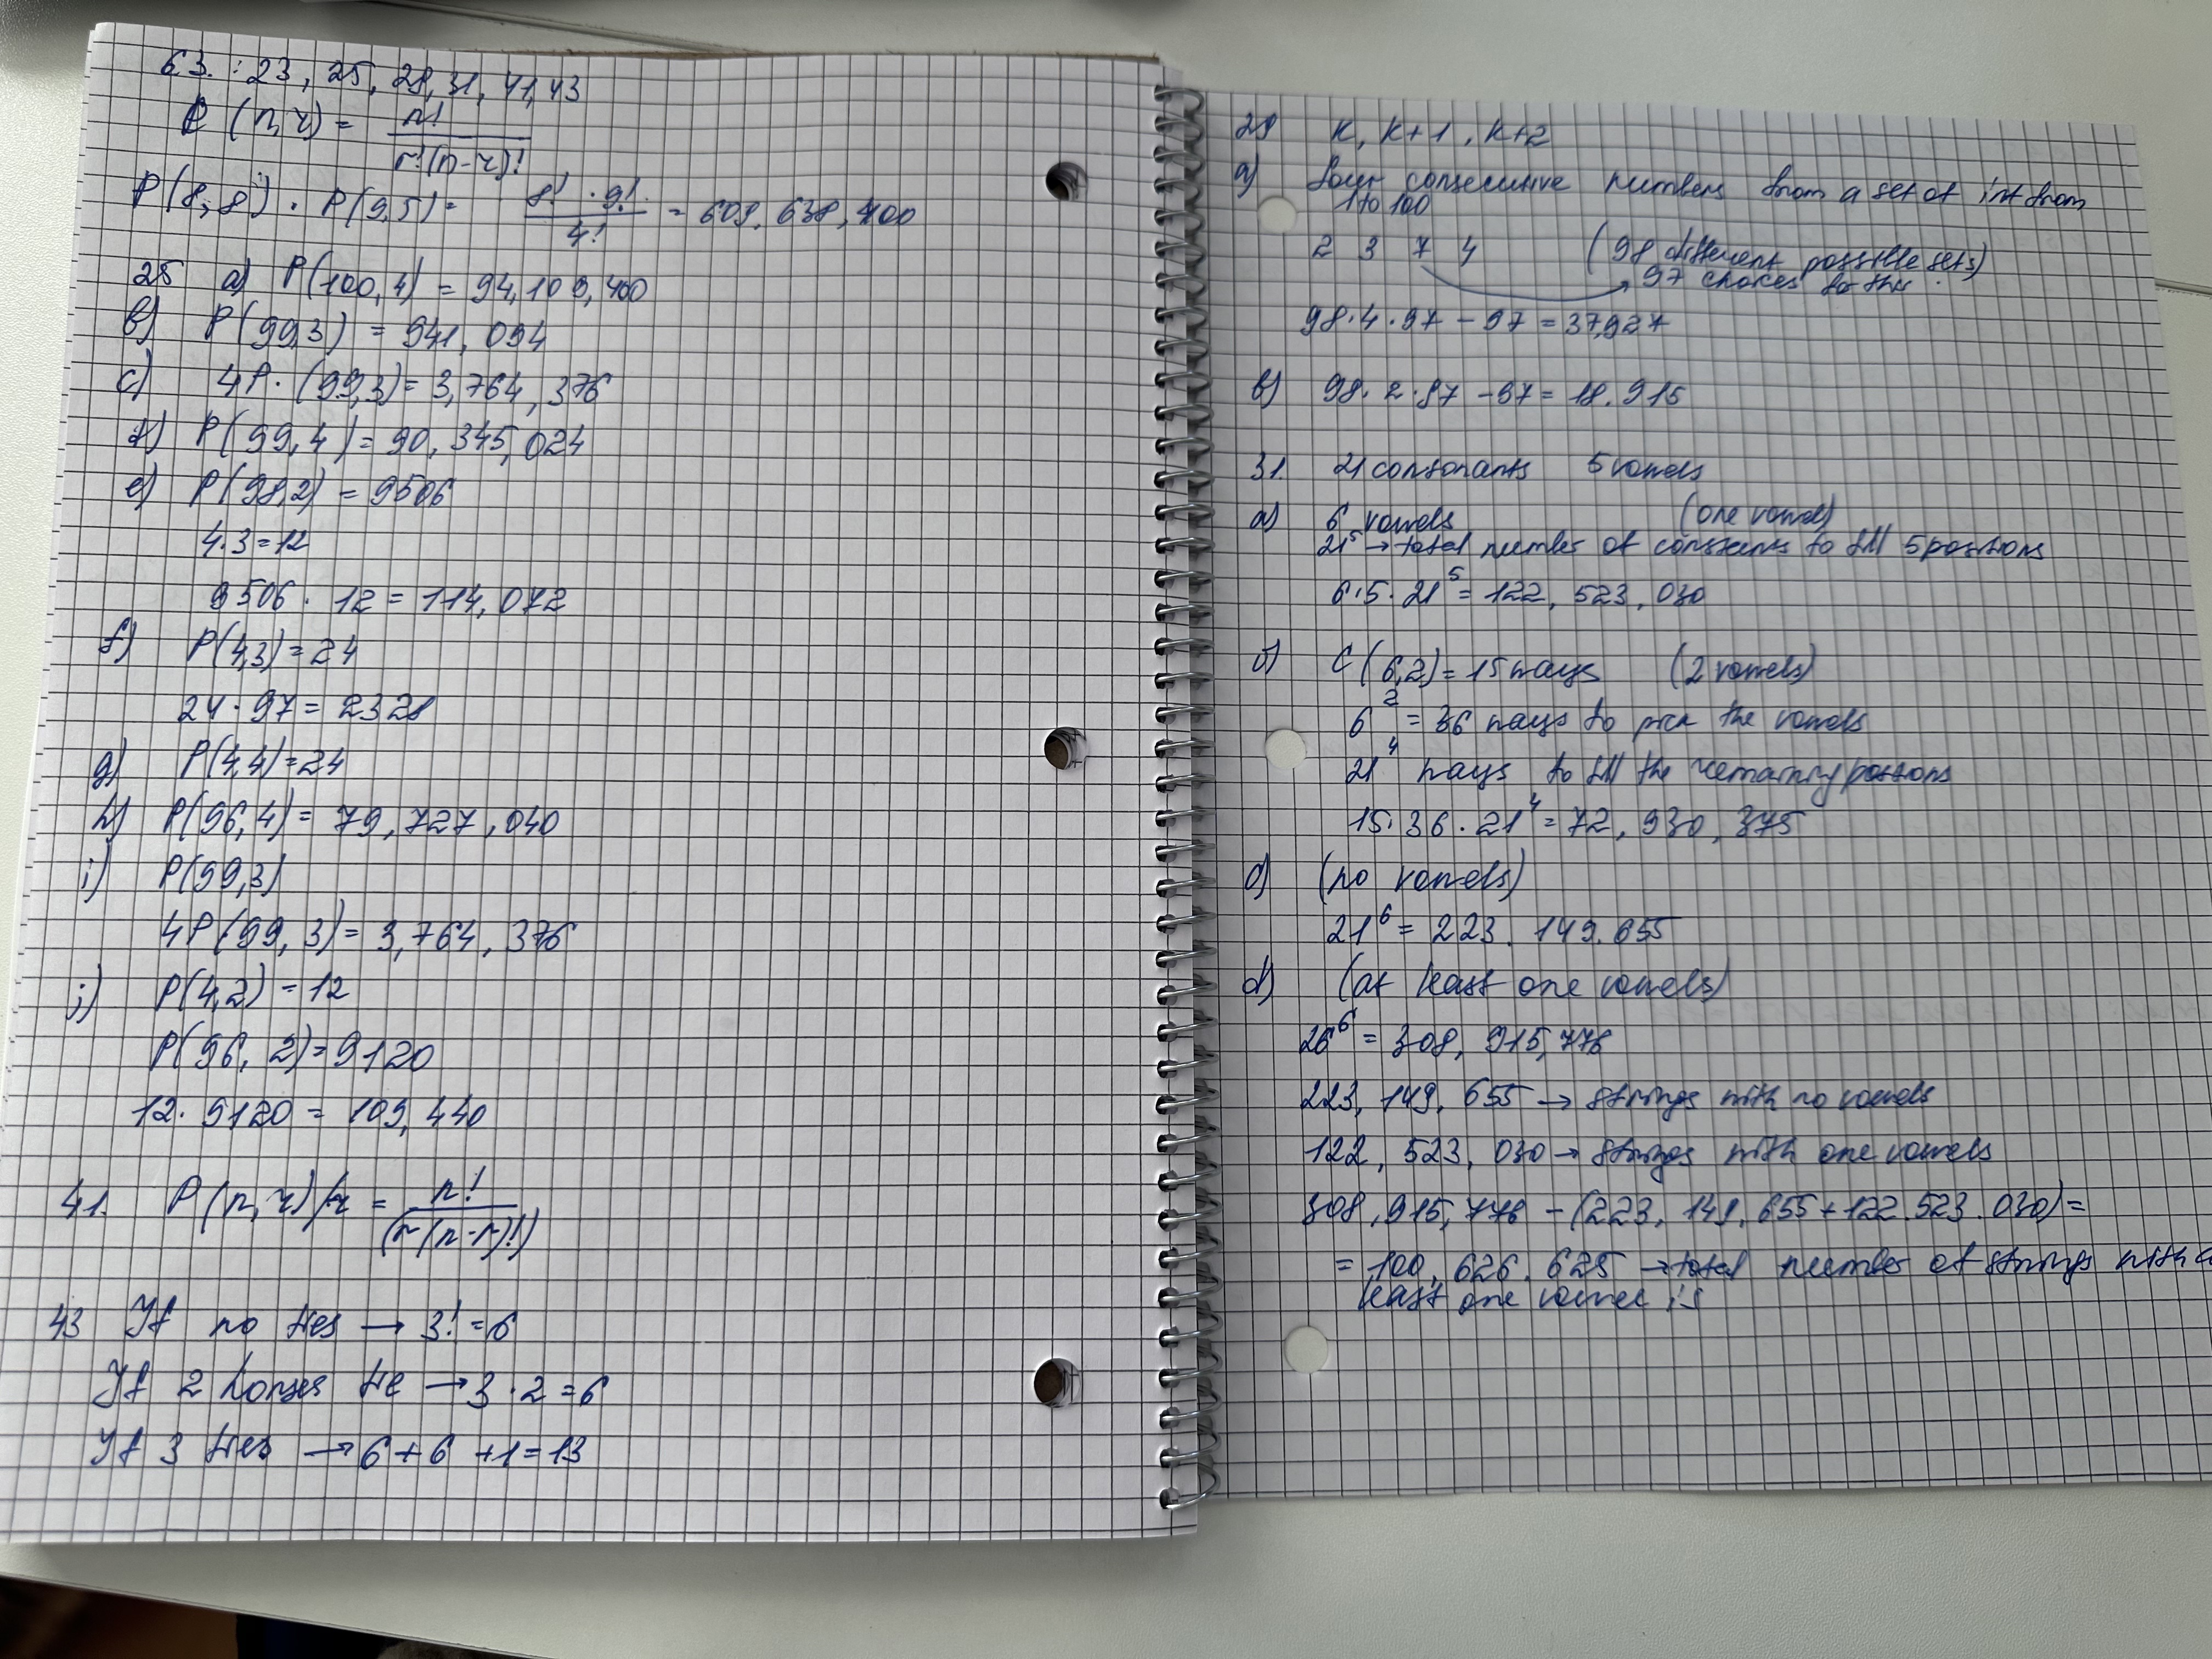 6.3. : 23, 25, 28, 31, 41, 43
C (n, r) = n! / r!(n-r)!
P(8,8) · P(9,5) = 8! · 9! / 4! = 609,638,400
25 a) P(100,4) = 94,109,400
b) P(99,3) = 941,094
c) 4P·(99,3) = 3,764,376
d) P(99,4) = 90,345,024
e) P(98,2) = 9506
4·3=12
9506 · 12 = 114,072
f) P(4,3) = 24
24 · 97 = 2328
g) P(4,4) = 24
h) P(96,4) = 79,727,040
i) P(99,3)
4P(99,3) = 3,764,376
j) P(4,2) = 12
P(96,2) = 9120
12 · 9120 = 109,440
41. P(n,r)/r = n! / (r(n-r)!)
43 If no ties → 3! = 6
If 2 horses tie → 3 · 2 = 6
If 3 ties → 6 + 6 + 1 = 13
29 K, K+1, K+2
a) four consecutive numbers from a set of int from
1 to 100
2 3 7 4 (98 different possible sets)
97 choices for this
98·4·97 - 97 = 37,927
b) 98·2·97 - 97 = 18.915
31. 21 consonants 5 vowels
a) 6 vowels (one vowel)
21⁵ → total number of constants to fill 5 positions
6·5·21⁵ = 122, 523, 030
b) C(6,2) = 15 ways (2 vowels)
6² = 36 ways to pick the vowels
21⁴ ways to fill the remaining positions
15·36·21⁴ = 72, 930, 375
(no vowels)
21⁶ = 223. 149. 655
d) (at least one vowels)
26⁶ = 308, 915, 776
223, 149, 655 → strings with no vowels
122, 523, 030 → strings with one vowels
308, 915, 776 - (223, 149, 655 + 122.523.030) =
= 100, 626. 625 → total number of strings with
least one vowel is